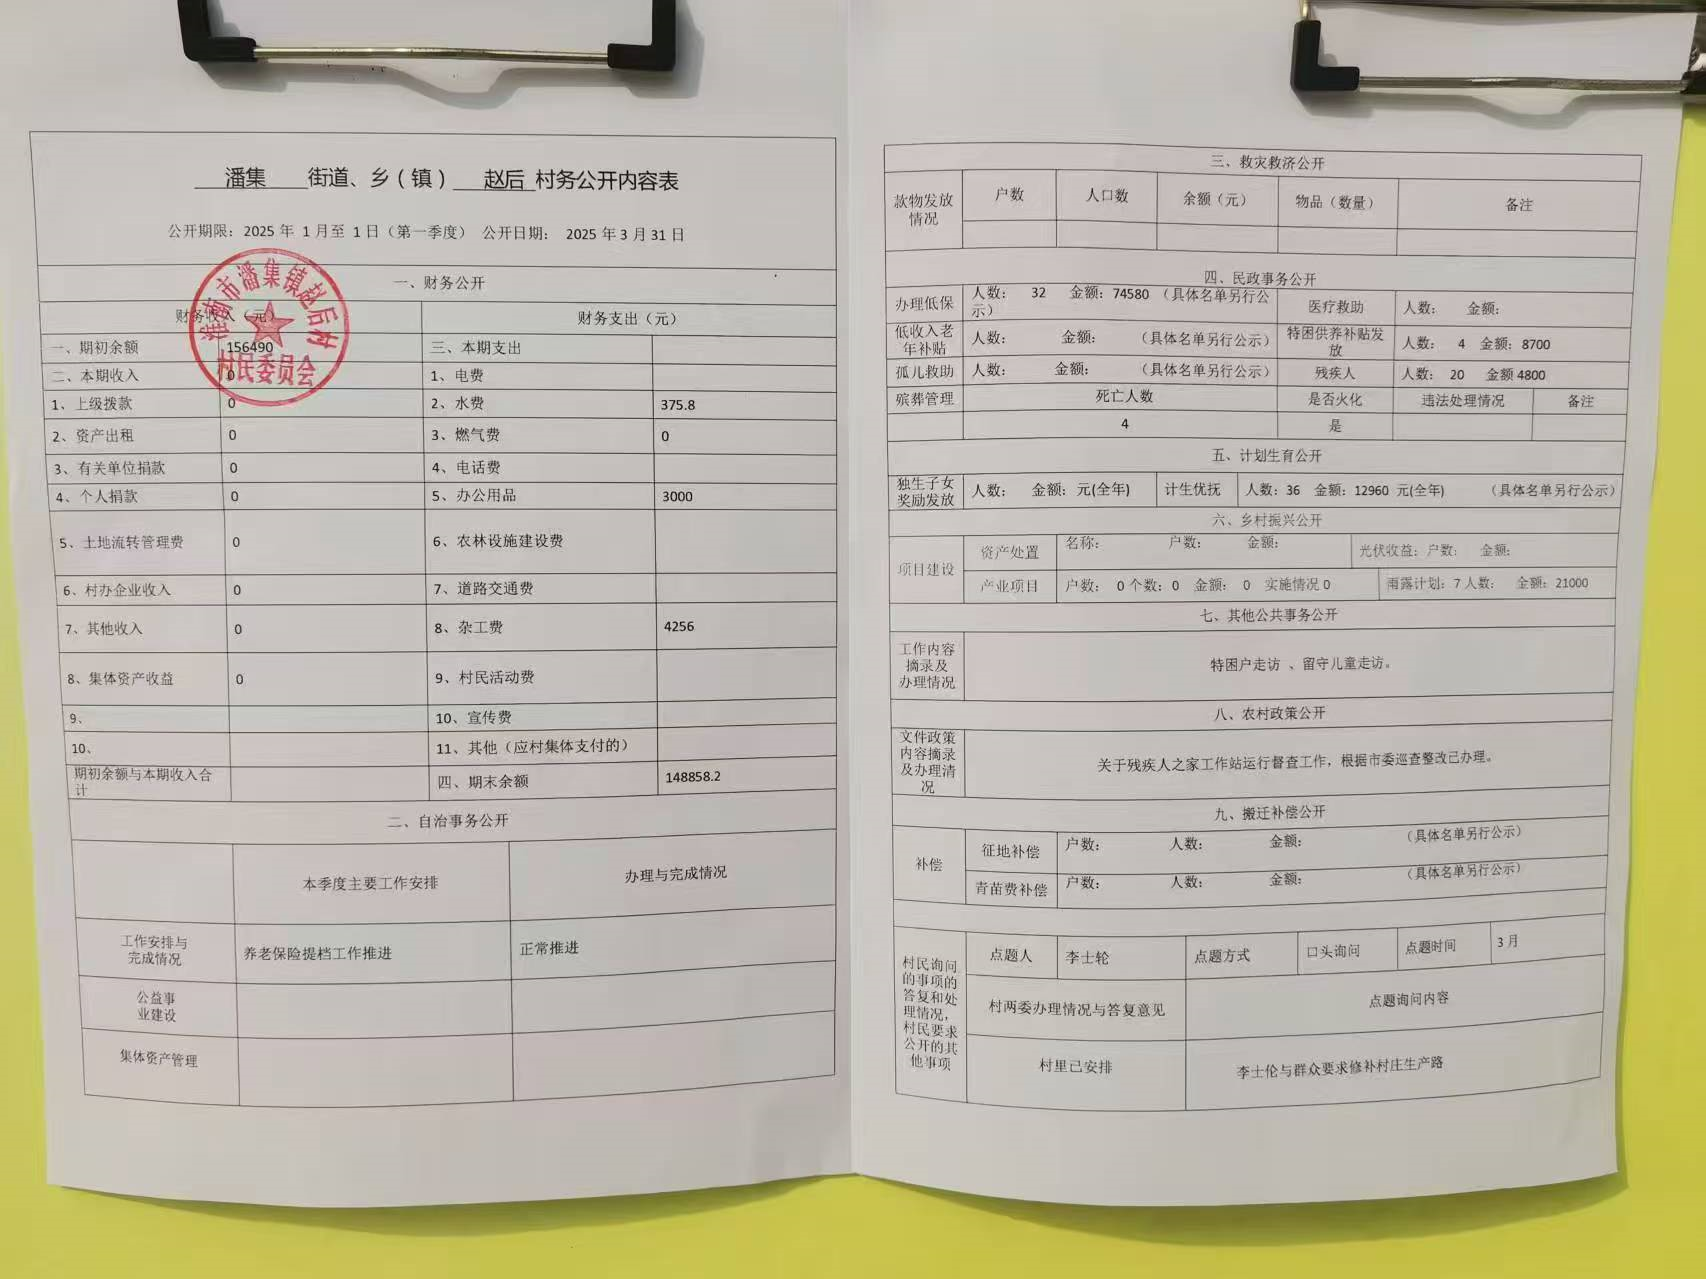 潘集 街道、乡（镇） 赵后 村务公开内容表
公开期限：2025 年 1 月至 1 日（第一季度） 公开日期： 2025 年 3 月 31 日
一、财务公开
财务收入（元） 财务支出（元）
淮南市潘集镇赵后村
村民委员会
一、期初余额 156490 三、本期支出
二、本期收入 0 1、电费
1、上级拨款 0 2、水费 375.8
2、资产出租 0 3、燃气费 0
3、有关单位捐款 0 4、电话费
4、个人捐款 0 5、办公用品 3000
5、土地流转管理费 0 6、农林设施建设费
6、村办企业收入 0 7、道路交通费
7、其他收入 0 8、杂工费 4256
8、集体资产收益 0 9、村民活动费
9、 10、宣传费
10、 11、其他（应村集体支付的）
期初余额与本期收入合
计
四、期末余额 148858.2
二、自治事务公开
本季度主要工作安排 办理与完成情况
工作安排与
完成情况
养老保险提档工作推进 正常推进
公益事
业建设
集体资产管理
三、救灾救济公开
款物发放
情况
户数 人口数 余额（元） 物品（数量） 备注
四、民政事务公开
办理低保 人数： 32 金额：74580 （具体名单另行公
示）
医疗救助 人数： 金额：
低收入老
年补贴
人数： 金额： （具体名单另行公示）
特困供养补贴发
放
人数： 4 金额：8700
孤儿救助 人数： 金额： （具体名单另行公示） 残疾人 人数： 20 金额 4800
殡葬管理 死亡人数 是否火化 违法处理情况 备注
4 是
五、计划生育公开
独生子女
奖励发放
人数： 金额：元(全年) 计生优抚 人数：36 金额：12960 元(全年) （具体名单另行公示）
六、乡村振兴公开
项目建设
资产处置 名称： 户数： 金额： 光伏收益：户数： 金额：
产业项目 户数： 0 个数：0 金额： 0 实施情况 0 雨露计划：7 人数： 金额：21000
七、其他公共事务公开
工作内容
摘录及
办理情况
特困户走访 、留守儿童走访。
八、农村政策公开
文件政策
内容摘录
及办理清
况
关于残疾人之家工作站运行督查工作，根据市委巡查整改己办理。
九、搬迁补偿公开
补偿
征地补偿 户数： 人数： 金额： （具体名单另行公示）
青苗费补偿 户数： 人数： 金额： （具体名单另行公示）
村民询问
的事项的
答复和处
理情况，
村民要求
公开的其
他事项
点题人 李士轮 点题方式 口头询问 点题时间 3 月
村两委办理情况与答复意见 点题询问内容
村里已安排 李士伦与群众要求修补村庄生产路